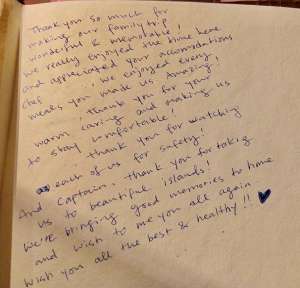 Thank you so much for
making our family trip
wonderful & memorable!
We really enjoyed the time here
and appreciated your accomodations
Chef , We enjoyed every
meals you made us. Amazing!
, Thank you for your
warm caring and making us
to stay comfortable!
, thank you for watching
each of us for safety!
And Captain, thank you for taking
us to beautiful islands!
We're bringing good memories to home
and wish to me you all again
Wish you all the best & healthy!!